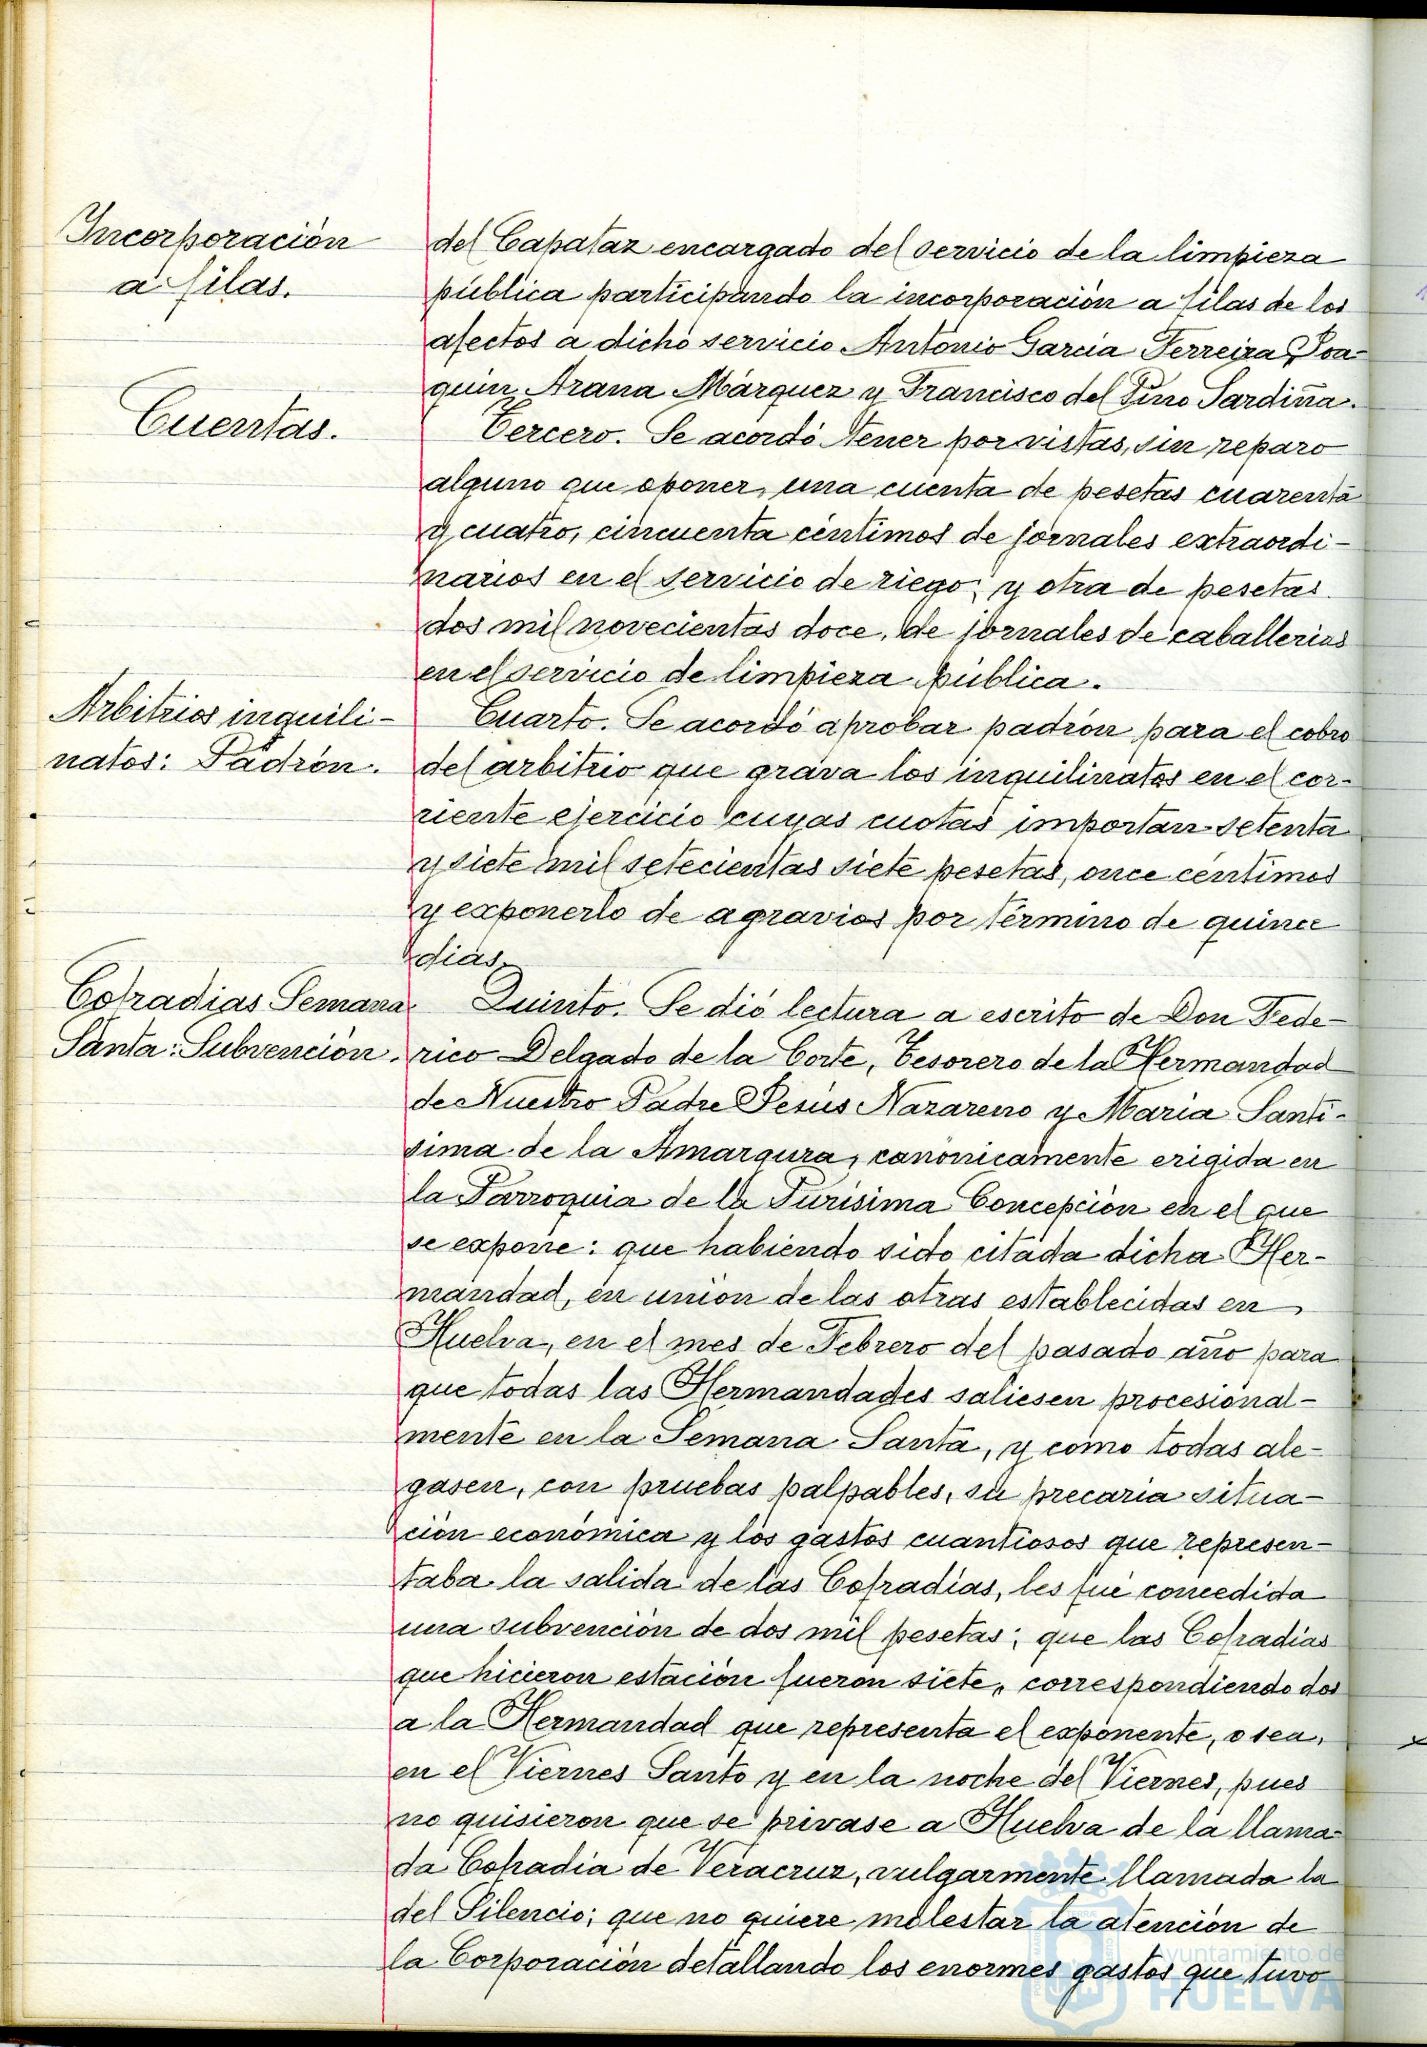 Incorporación
a filas.
del Capataz encargado del servicio de la limpieza
pública participando la incorporación a filas de los
afectos a dicho servicio Antonio García Ferreira, Joa-
quín Arana Márquez y Francisco del Pino Sardiña.
Cuentas.
Tercero. Se acordó tener por vistas, sin reparo
alguno que oponer, una cuenta de pesetas cuarenta
y cuatro, cincuenta céntimos de jornales extraordi-
narios en el servicio de riego; y otra de pesetas
dos mil novecientas doce, de jornales de caballerías
en el servicio de limpieza pública.
Arbitrios inquili-
natos: Padrón.
Cuarto. Se acordó aprobar padrón para el cobro
del arbitrio que grava los inquilinatos en el cor-
riente ejercicio cuyas cuotas importan setenta
y siete mil setecientas siete pesetas, once céntimos
y exponerlo de agravios por término de quince
días.
Cofradías Semana
Santa: Subvención.
Quinto. Se dió lectura a escrito de Don Fede-
rico Delgado de la Corte, Tesorero de la Hermandad
de Nuestro Padre Jesús Nazareno y María Santí-
sima de la Amargura, canónicamente erigida en
la Parroquia de la Purísima Concepción en el que
se expone: que habiendo sido citada dicha Her-
mandad, en unión de las otras establecidas en
Huelva, en el mes de Febrero del pasado año para
que todas las Hermandades saliesen procesional-
mente en la Semana Santa, y como todas ale-
gasen, con pruebas palpables, su precaria situa-
ción económica y los gastos cuantiosos que represen-
taba la salida de las Cofradías, les fué concedida
una subvención de dos mil pesetas; que las Cofradías
que hicieron estación fueron siete, correspondiendo dos
a la Hermandad que representa el exponente, o sea,
en el Viernes Santo y en la noche del Viernes, pues
no quisieron que se privase a Huelva de la llama-
da Cofradía de Veracruz, vulgarmente llamada la
del Silencio; que no quiere molestar la atención de
la Corporación detallando los enormes gastos que tuvo
Ayuntamiento de
HUELVA